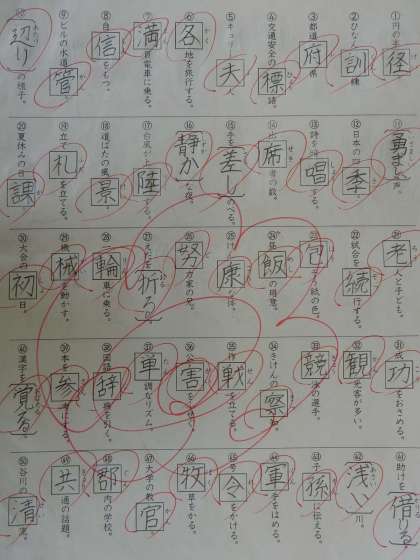 ①円の半径
②ひなん訓練
③都道府県
④交通安全の標語。
⑤キュリー夫人
⑥各地を旅行する。
⑦満員電車に乗る。
⑧自信をもつ。
⑨ビルの水道管
⑩辺りの様子。
⑪勇ましい声。
⑫日本の四季
⑬詩を暗唱する。
⑭出席者の数。
⑮手を差しのべる。
⑯静かな夜。
⑰台風が上陸する。
⑱道ばたの風景。
⑲立て札を立てる。
⑳夏休みの日課
㉑老人と子ども。
㉒試合を続行する。
㉓包そう紙の色。
㉔昼飯の用意。
㉕けん康な体。
㉖努力家の兄。
㉗を折る。
㉘一輪車に乗る。
㉙機械を動かす。
㉚大会の初日。
㉛成功をおさめる。
㉜観光客が多い。
㉝競泳の選手。
㉞きけんの察知
㉟作戦を立てる。
㊱公害をなくす。
㊲単調なリズム。
㊳国語辞典を引く。
㊴本を参考にする。
㊵漢字を覚える。
㊶助けを借りる。
㊷浅い川。
㊸子孫に伝える。
㊹軍手をはめる。
㊺号令をかける。
㊻牧草をかる。
㊼大学の教官
㊽郡内の学校。
㊾共通の話題。
㊿谷川の清流。